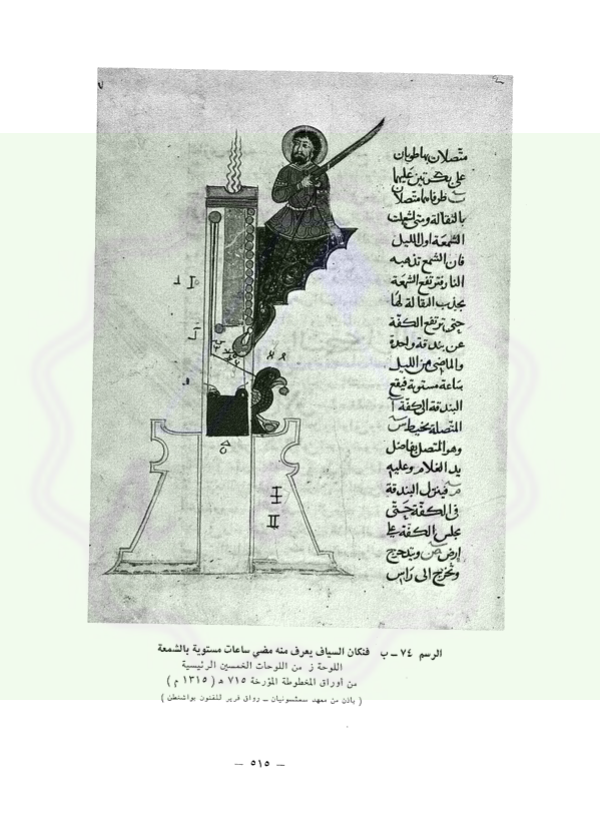 متصلان بها طوبان
على بكرتين عليهما
طرفاهما متصلان
بالثقالة ومتى اشعلت
الشمعة اول الليل
فان الشمع تذهبه
النار فترتفع الشمعة
بجذب الثقالة لها
حتى ترتفع الكفة
عن بندقة واحدة
والماضي من الليل
ساعة مستوية فيقع
البندقة الى كفة
المتصلة بخيط س
وهو المتصل بفاضل
يد الغلام وعليه
فينزل البندقة
فى الكفة حتى
يجلس الكفة على
ارض ص ويتدحرج
وتخرج الى راس
الرسم ٧٤ – ب فنكان السياف يعرف منه مضي ساعات مستوية بالشمعة
اللوحة ز من اللوحات الخمسين الرئيسية
من أوراق المخطوطة المؤرخة ٧١٥ هـ ( ١٣١٥ م )
( باذن من معهد سمثسونيان – رواق فرير للفنون بواشنطن )
– ٥١٥ –